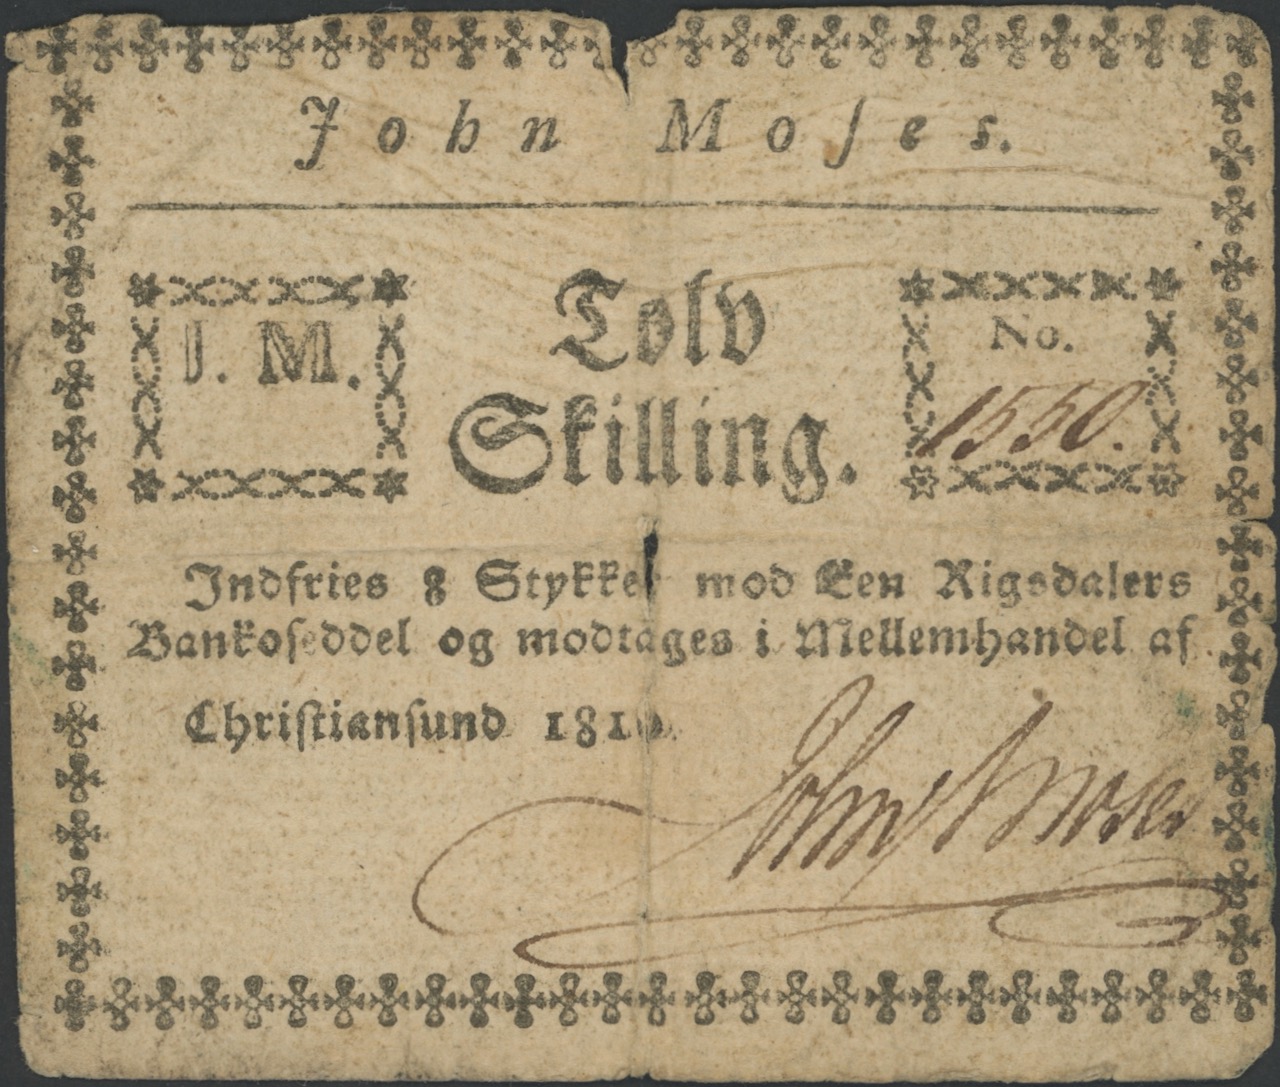 John Moſes.
I. M.
Tolv
Skilling.
No.
1550.
Indfries 8 Stykker mod Een Rigsdalers
Bankoſeddel og modtages i Mellemhandel af
Chriſtianſund 1810.
John Moses